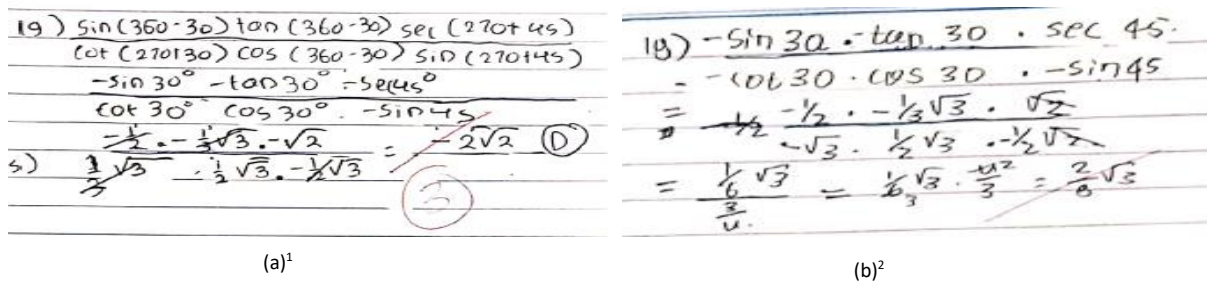 19) sin(360-30) tan(360-30) sec(270+45)
cot(270+30) cos(360-30) sin(270+45)
-sin 30° -tan 30° -sec 45°
cot 30° cos 30° . -sin 45
-1/2 . -1/3√3 . -√2 = -2√2 (D)
1/3√3 . 1/2√3 . -1/2√3
s)
(a)¹
19) -sin 30 . -tan 30 . sec 45.
-cot 30 . cos 30 . -sin 45
= -1/2 . -1/3√3 . √2
-√3 . 1/2√3 . -1/2√2
= 1/6√3 = 1/6√3 . 4²/3 = 2/8√3
3/4.
(b)²